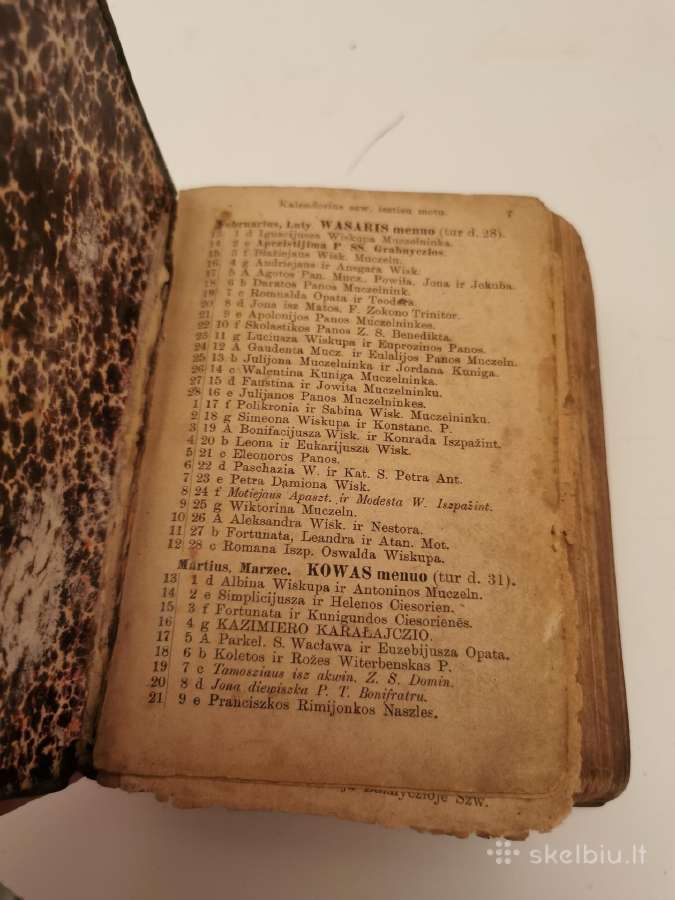 Kalendorius szw. isztisu metu. 7
Februarius, Luty WASARIS menuo (tur d. 28).
13 1 d Ignacijusza Wiskupa Muczelninka.
14 2 e Apczistijima P. SS. Grabnyczios.
15 3 f Błažiejaus Wisk. Muczeln.
16 4 g Andriejaus ir Ansgara Wisk.
17 5 A Agotos Pan. Mucz. Powiła. Jona ir Jokuba.
18 6 b Daratos Panos Muczelnink.
19 7 c Romualda Opata ir Teodora.
20 8 d Jona isz Matos, F. Zokono Trinitor.
21 9 e Apolonijos Panos Muczelninkes.
22 10 f Skolastikos Panos Z. S. Benedikta.
23 11 g Luciusza Wiskupa ir Euprozinos Panos.
24 12 A Gaudenta Mucz. ir Eulalijos Panos Muczeln.
25 13 b Julijona Muczelninka ir Jordana Kuniga.
26 14 c Walentina Kuniga Muczelninka.
27 15 d Faustina ir Jowita Muczelninku.
28 16 e Julijanos Panos Muczelninkes.
1 17 f Polikronia ir Sabina Wisk. Muczelninku.
2 18 g Simeona Wiskupa ir Konstanc. P.
3 19 A Bonifacijusza Wisk. ir Konrada Iszpažint.
4 20 b Leona ir Eukarijusza Wisk.
5 21 c Eleonoros Panos.
6 22 d Paschazia W. ir Kat. S. Petra Ant.
7 23 e Petra Damiona Wisk.
8 24 f Motiejaus Apaszt. ir Modesta W. Iszpažint.
9 25 g Wiktorina Muczeln.
10 26 A Aleksandra Wisk. ir Nestora.
11 27 b Fortunata, Leandra ir Atan. Mot.
12 28 c Romana Iszp. Oswalda Wiskupa.
Martius, Marzec. KOWAS menuo (tur d. 31).
13 1 d Albina Wiskupa ir Antoninos Muczeln.
14 2 e Simplicijusza ir Helenos Ciesorien.
15 3 f Fortunata ir Kunigundos Ciesorienės.
16 4 g KAZIMIERO KARAŁAJCZIO.
17 5 A Parkel. S. Wacława ir Euzebijusza Opata.
18 6 b Koletos ir Rožes Witerbenskas P.
19 7 c Tamosziaus isz akwin. Z. S. Domin.
20 8 d Jona diewiszka P. T. Bonifratru.
21 9 e Pranciszkos Rimijonkos Naszles.
Szw.
skelbiu.lt